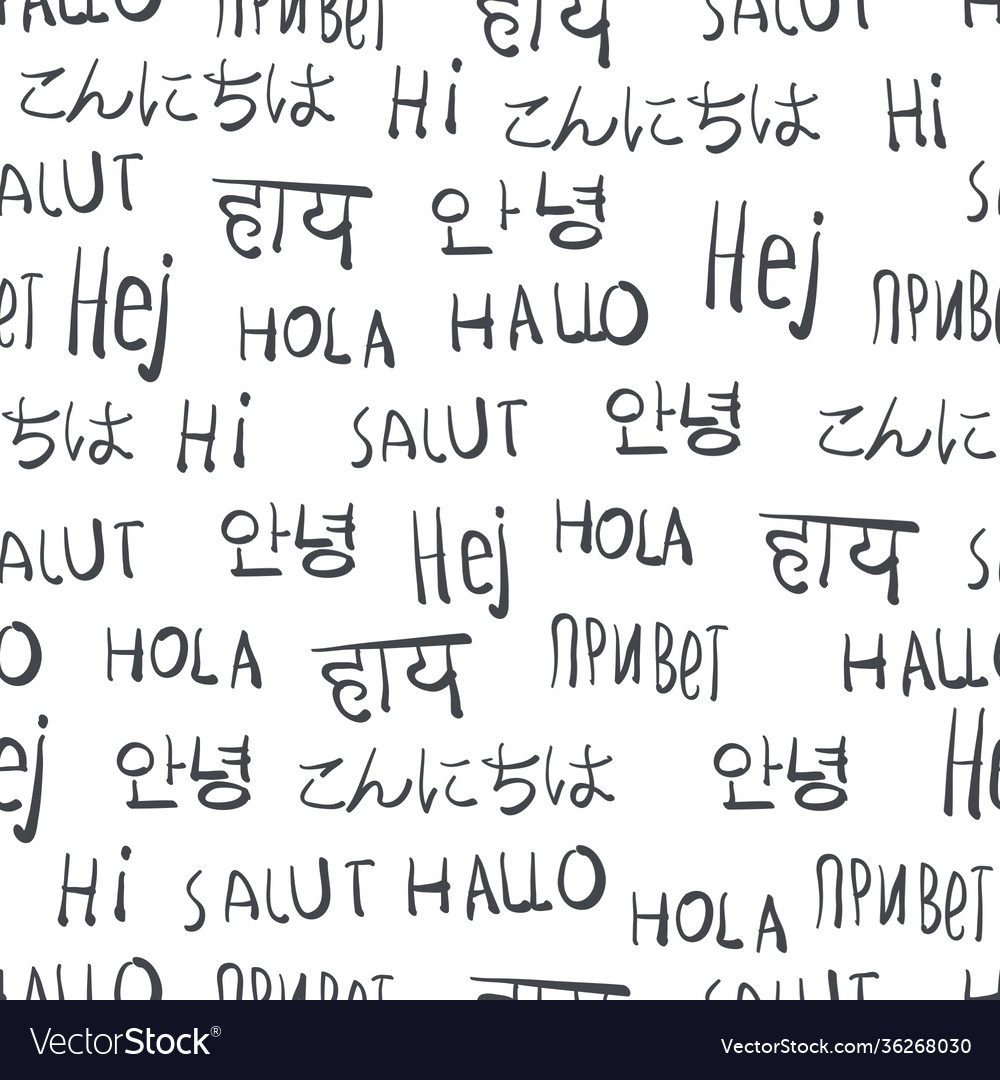 HALLO ПРИВЕТ हाय SALUT H
こんにちは Hi こんにちは Hi
ALUT हाय 안녕 Hej S
ет Hej HOLA HALLO ПРИВЕ
ちは Hi SALUT 안녕 こんに
ALUT 안녕 Hej HOLA हाय S
O HOLA हाय ПРИВеТ HALLO
ej 안녕 こんにちは 안녕 He
Hi SALUT HALLO HOLA ПРИВеТ
HALLO ПРИВЕТ हाय SALUT H
VectorStock® VectorStock.com/36268030